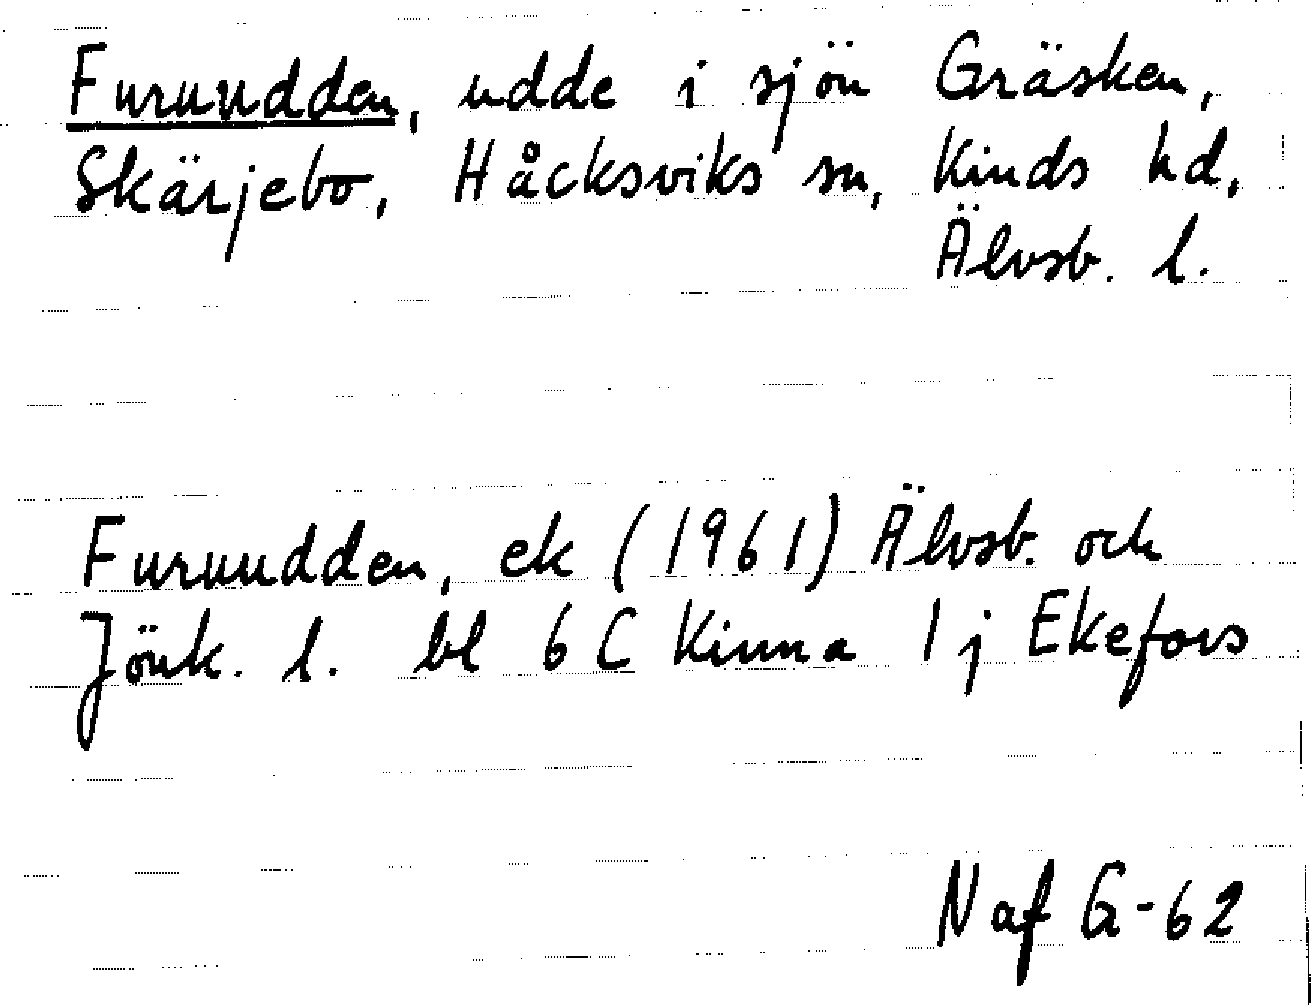 Furuudden, udde i sjön Gräsken,
Skärjebo, Håcksviks sn, Kinds hd,
Älvsb. l.
Furuudden, ek (1961) Älvsb. och
Jönk. l. bl 6 C Kinna 1 j Ekefors
N af G-62